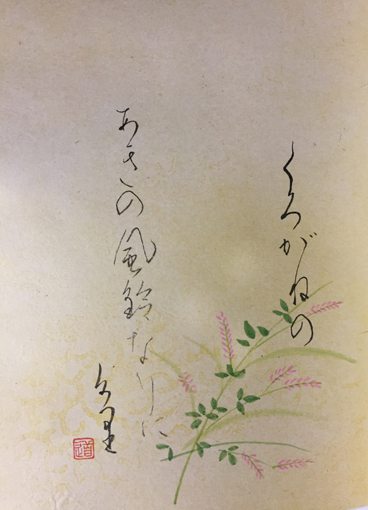 くろがねの
あきの風鈴なりに
けり